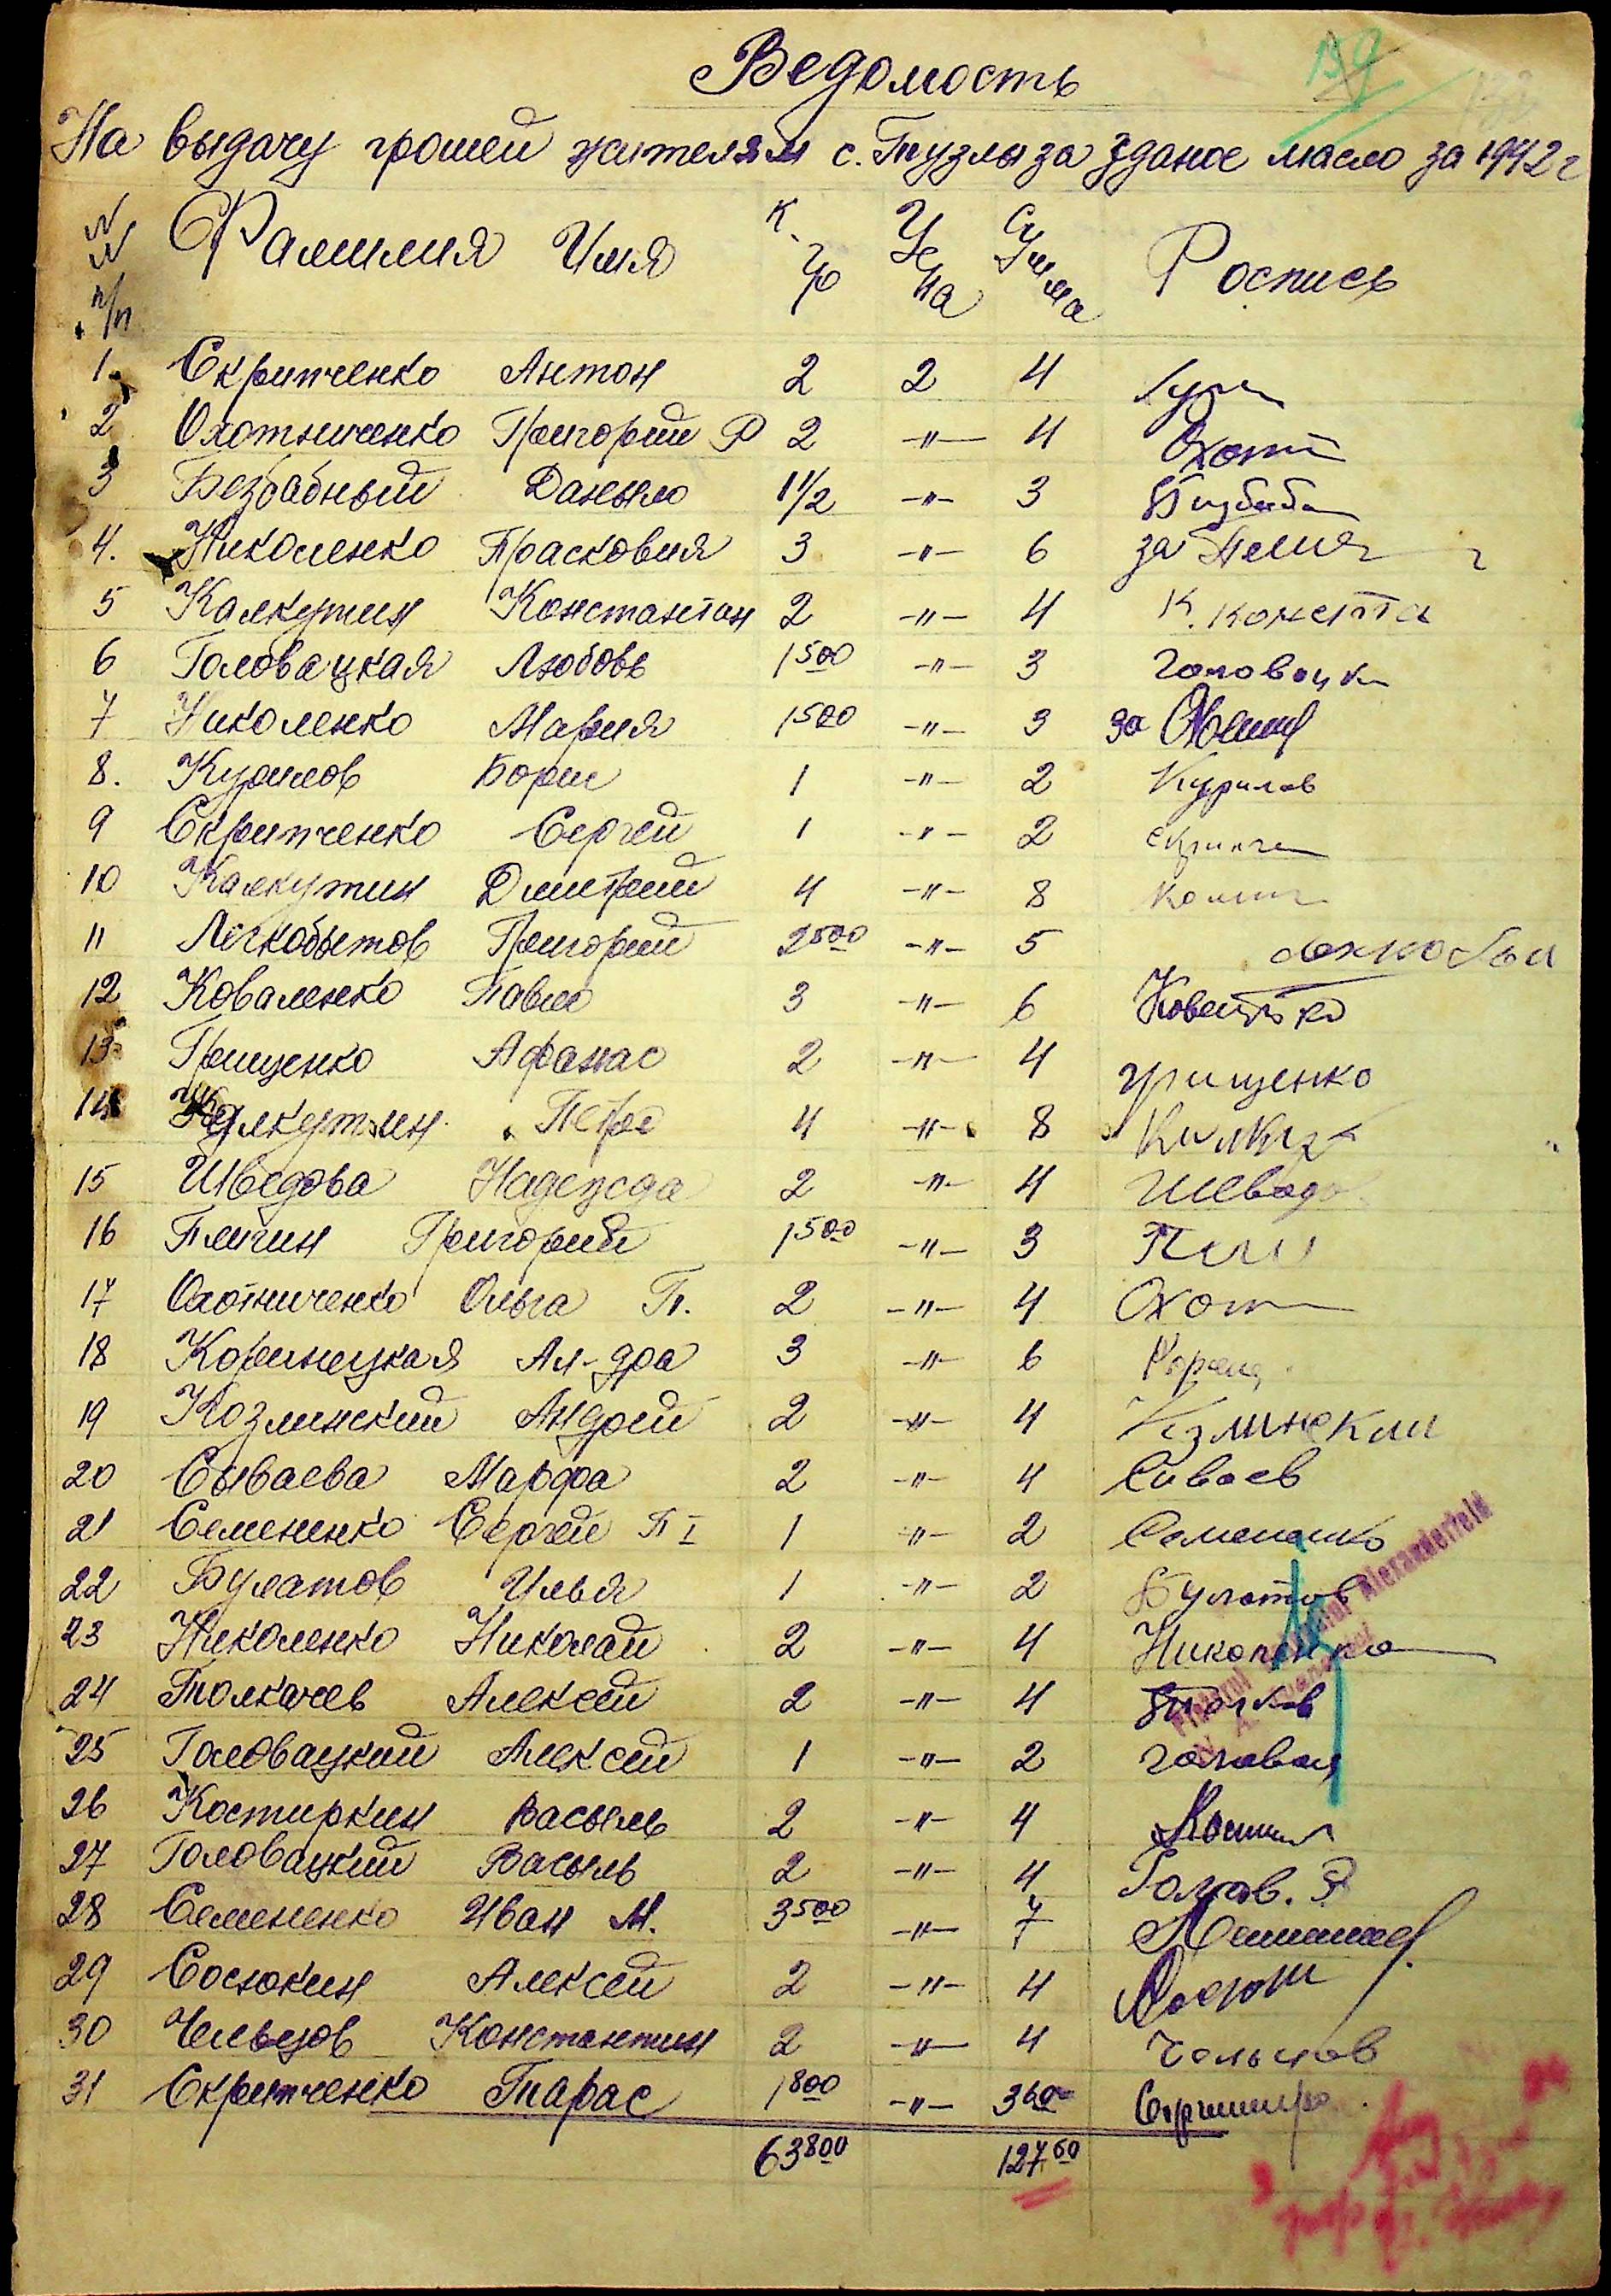 159
Ведомость
На выдачу грошей жителям с. Тузлы за здание масло за 1942 г
№№ п/п Фамилия Имя К-гр Цена Сумма Роспись
1. Скрипченко Антон 2 2 4
2 Охотниченко Григорий Р 2 -"- 4 Охотн
3 Безбабный Даныло 1 1/2 -"- 3 Бизбаб
4. Николенко Прасковия 3 -"- 6 за
5 Калкутин Константин 2 -"- 4 К. Конста
6 Головацкая Любовь 1500 -"- 3 Головацк
7 Николенко Мария 1500 -"- 3 за
8. Курилов Борис 1 -"- 2 Курилов
9 Скрипченко Сергей 1 -"- 2 Скрипч
10 Калкутин Дмитрий 4 -"- 8
11 Легкобытов Григорий 2500 -"- 5
12 Коваленко Павло 3 -"- 6
13 Грищенко Афанас 2 -"- 4 Грищенко
14 Калкутин Петро 4 -"- 8
15 Шведова Надежда 2 -"- 4 Шевадо
16 Пличин Григорий 1500 -"- 3
17 Охотниченко Ольга Г. 2 -"- 4 Охот
18 Кориницкая Ал-дра 3 -"- 6
19 Козлинский Андрей 2 -"- 4 Кзлинский
20 Сываева Марфа 2 -"- 4 Сиваев
21 Семененко Сергей П I 1 -"- 2 Семененко
22 Булатов Илья 1 -"- 2 Булатов
23 Николенко Николай 2 -"- 4 Николенко
24 Толкачев Алексей 2 -"- 4
25 Головацкий Алексей 1 -"- 2 Головац
26 Костиркин Василь 2 -"- 4
27 Головацкий Василь 2 -"- 4 Голов. В
28 Семененко Иван М. 3500 -"- 7
29 Сосюкин Алексей 2 -"- 4
30 Чельцов Константин 2 -"- 4 Чельцов
31 Скрипченко Тарас 1800 -"- 360
63800 12760
Alexanderfeld